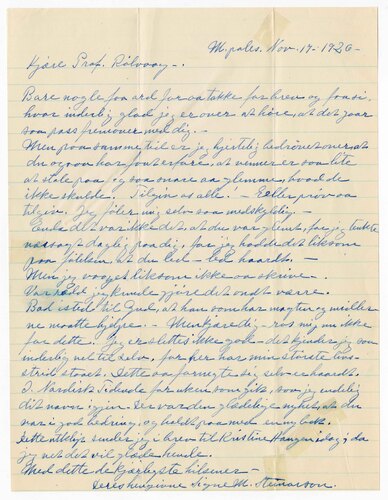 M.poles. Nov. 17-1926-
Kjære Prof. Rölvaag-.
Bare nogle faa ord for aa takke for brev og faa si,
hvor inderlig glad jeg er over at höre, at det gaar
saa pass fremover med dig.-
Men paa samme tid er jeg hjertelig bedrövet over at
du ogsaa har faat erfare, at venner er saa lite
at stole paa og saa snare aa glemme, hvad de
ikke skulde. Tilgiv os alle. - Eller pröv aa
tilgiv. Jeg föler mig selv saa medskyldig-
Enda det var ikke det, at du var glemt, for jeg tenkte
næsagt daglig paa dig, for jeg hadde det liksom
paa fölelsen, at du led - led haardt.-
Men jeg vaaget liksom ikke aa skrive.
Var redd jeg kunde gjöre det ondt værre.
Bad isteden til Gud, at han som har magten og midler
ne maatte hjelpe. - Men kjære dig - ros mig nu ikke
for dette. Jeg er slett ikke god - det kjender jeg saa
inderlig vel til selv, for her har min störste livs-
strid staaet. Dette aa fornegte sig selv er haardt.
I Nordisk Tidende for uken som gik, saa jeg endelig
dit navn igjen. Der var den glædelige nyhet, at du
var i god bedring, og holdt paa med en ny bok.
Dette utklip sender jeg i brev til Kristine Haugen idag; da
jeg vet det vil glæde hende.
Med dette de kjærligste hilsener-
Deres hengivne Signe M. Steinarson.